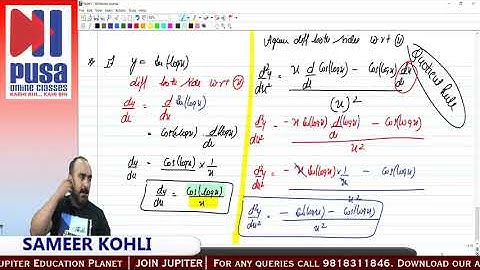 PUSA
ONLINE CLASSES
KABHI BHI... KAHI BHI
* If y = sin(logx)
diff both sides w.r.t x
dy/dx = d/dx sin(logx)
= cos(logx) d/dx (logx)
dy/dx = cos(logx) × 1/x
dy/dx = cos(logx)/x
Again diff both sides w.r.t x
d²y/dx² = x d/dx cos(logx) - cos(logx) dx/dx
(x)²
Quotient Rule
d²y/dx² = -x sin(logx) d/dx(logx) - cos(logx)
x²
d²y/dx² = -x sin(logx) × 1/x - cos(logx)
x²
d²y/dx² = -sin(logx) - cos(logx)
x²
SAMEER KOHLI
UPITER EDUCATION PLANET | JOIN JUPITER| FOR ANY QUERIES CALL 9818311846. DOWNLOAD OUR A